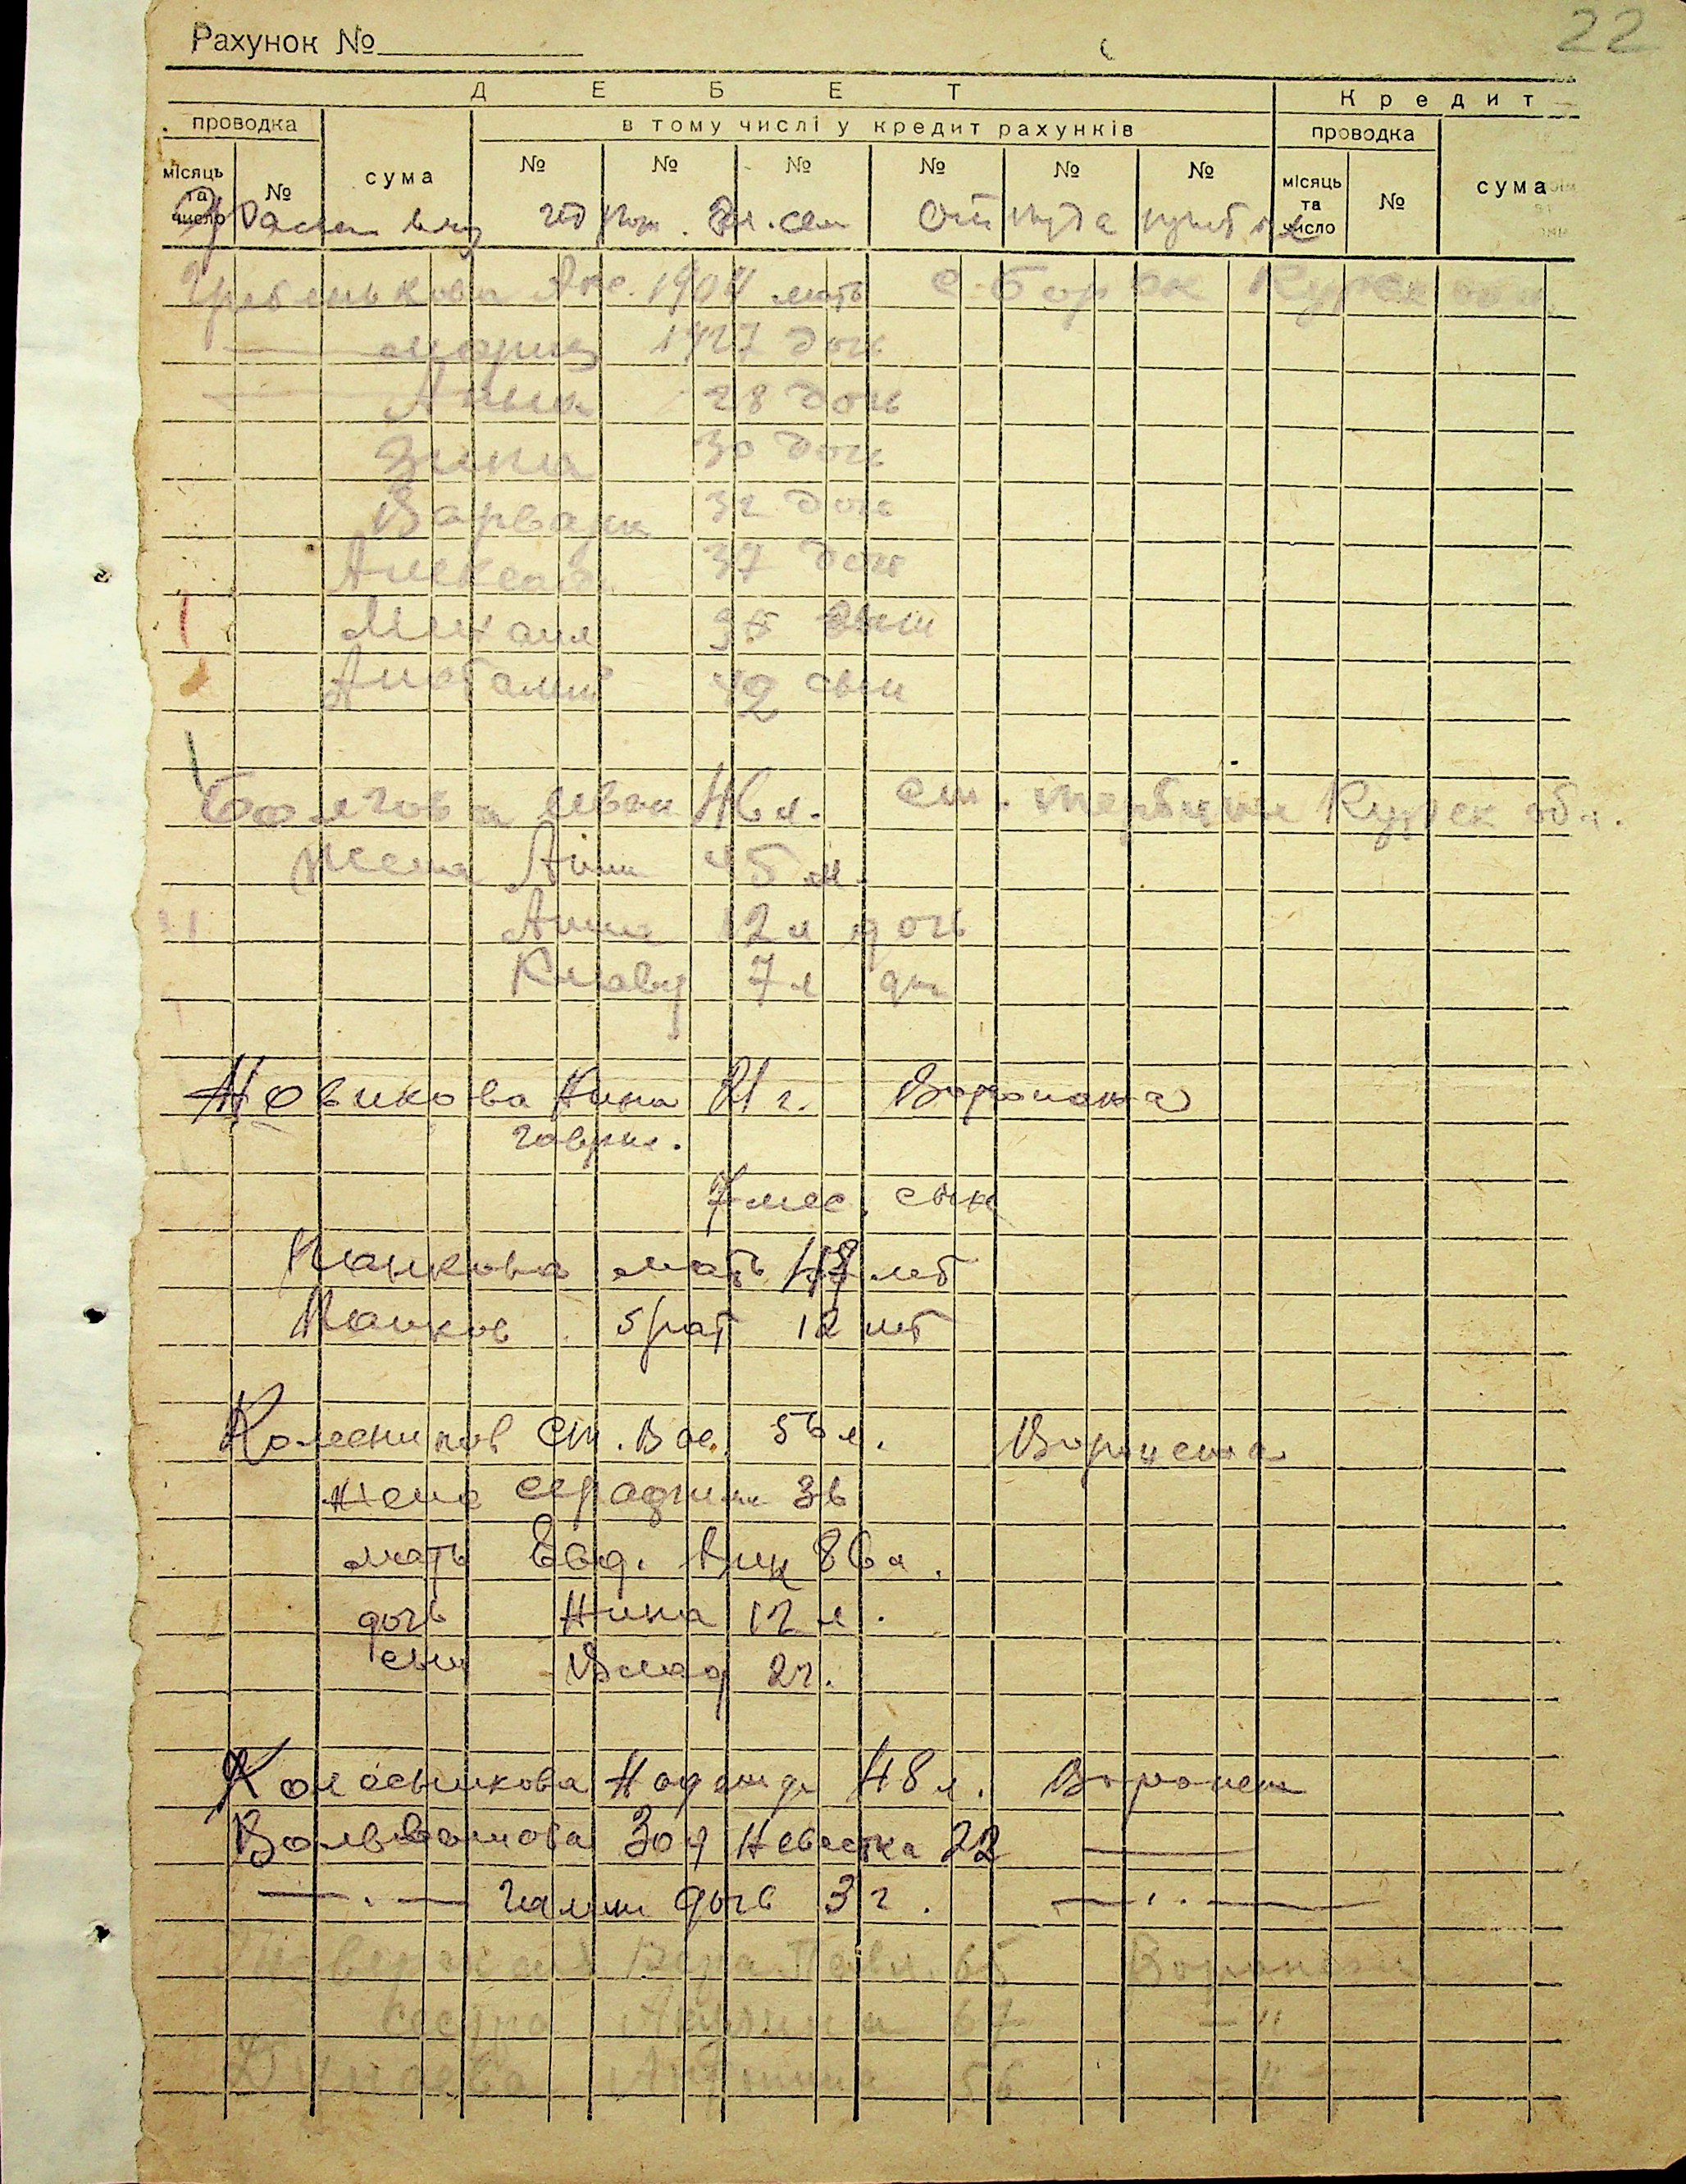 22
Рахунок №
ДЕБЕТ Кредит
проводка в тому числі у кредит рахунків проводка
місяць та число № сума № № № № № № місяць та число № сума
год рож. чл. сем откуда прибыл
Гребенькова Акс. 1904 мать с Борок Курск обл.
— Мария 1927 доч
— Анна 28 дочь
Зина 30 доч
Варвара 32 доч
Александ. 37 доч
Михаил сын
Анатолий 42 сын
Болгов Иван 46 л. ст. Курск обл.
жена Анна 45 л.
Анна 12 л дочь
Клавд 7 л доч
Новикова Нина 21 г. Воронежа
гаврил.
7 мес. сын
Панкова мать лет
Панков брат 12 лет
Колесников Ст. Вас. 56 л. Воронежа
жена Серафима 36
мать Евд. 86 л.
дочь Нина 12 л.
сын Влад 2 г.
Колесникова Надежда 48 л. Воронеж
Зоя Невестка 22 —
— . — Галина дочь 3 г. — . —
Вера Павл. 65 Воронеж
сестра 67 — "
Дунаева Антонина 56 — " —